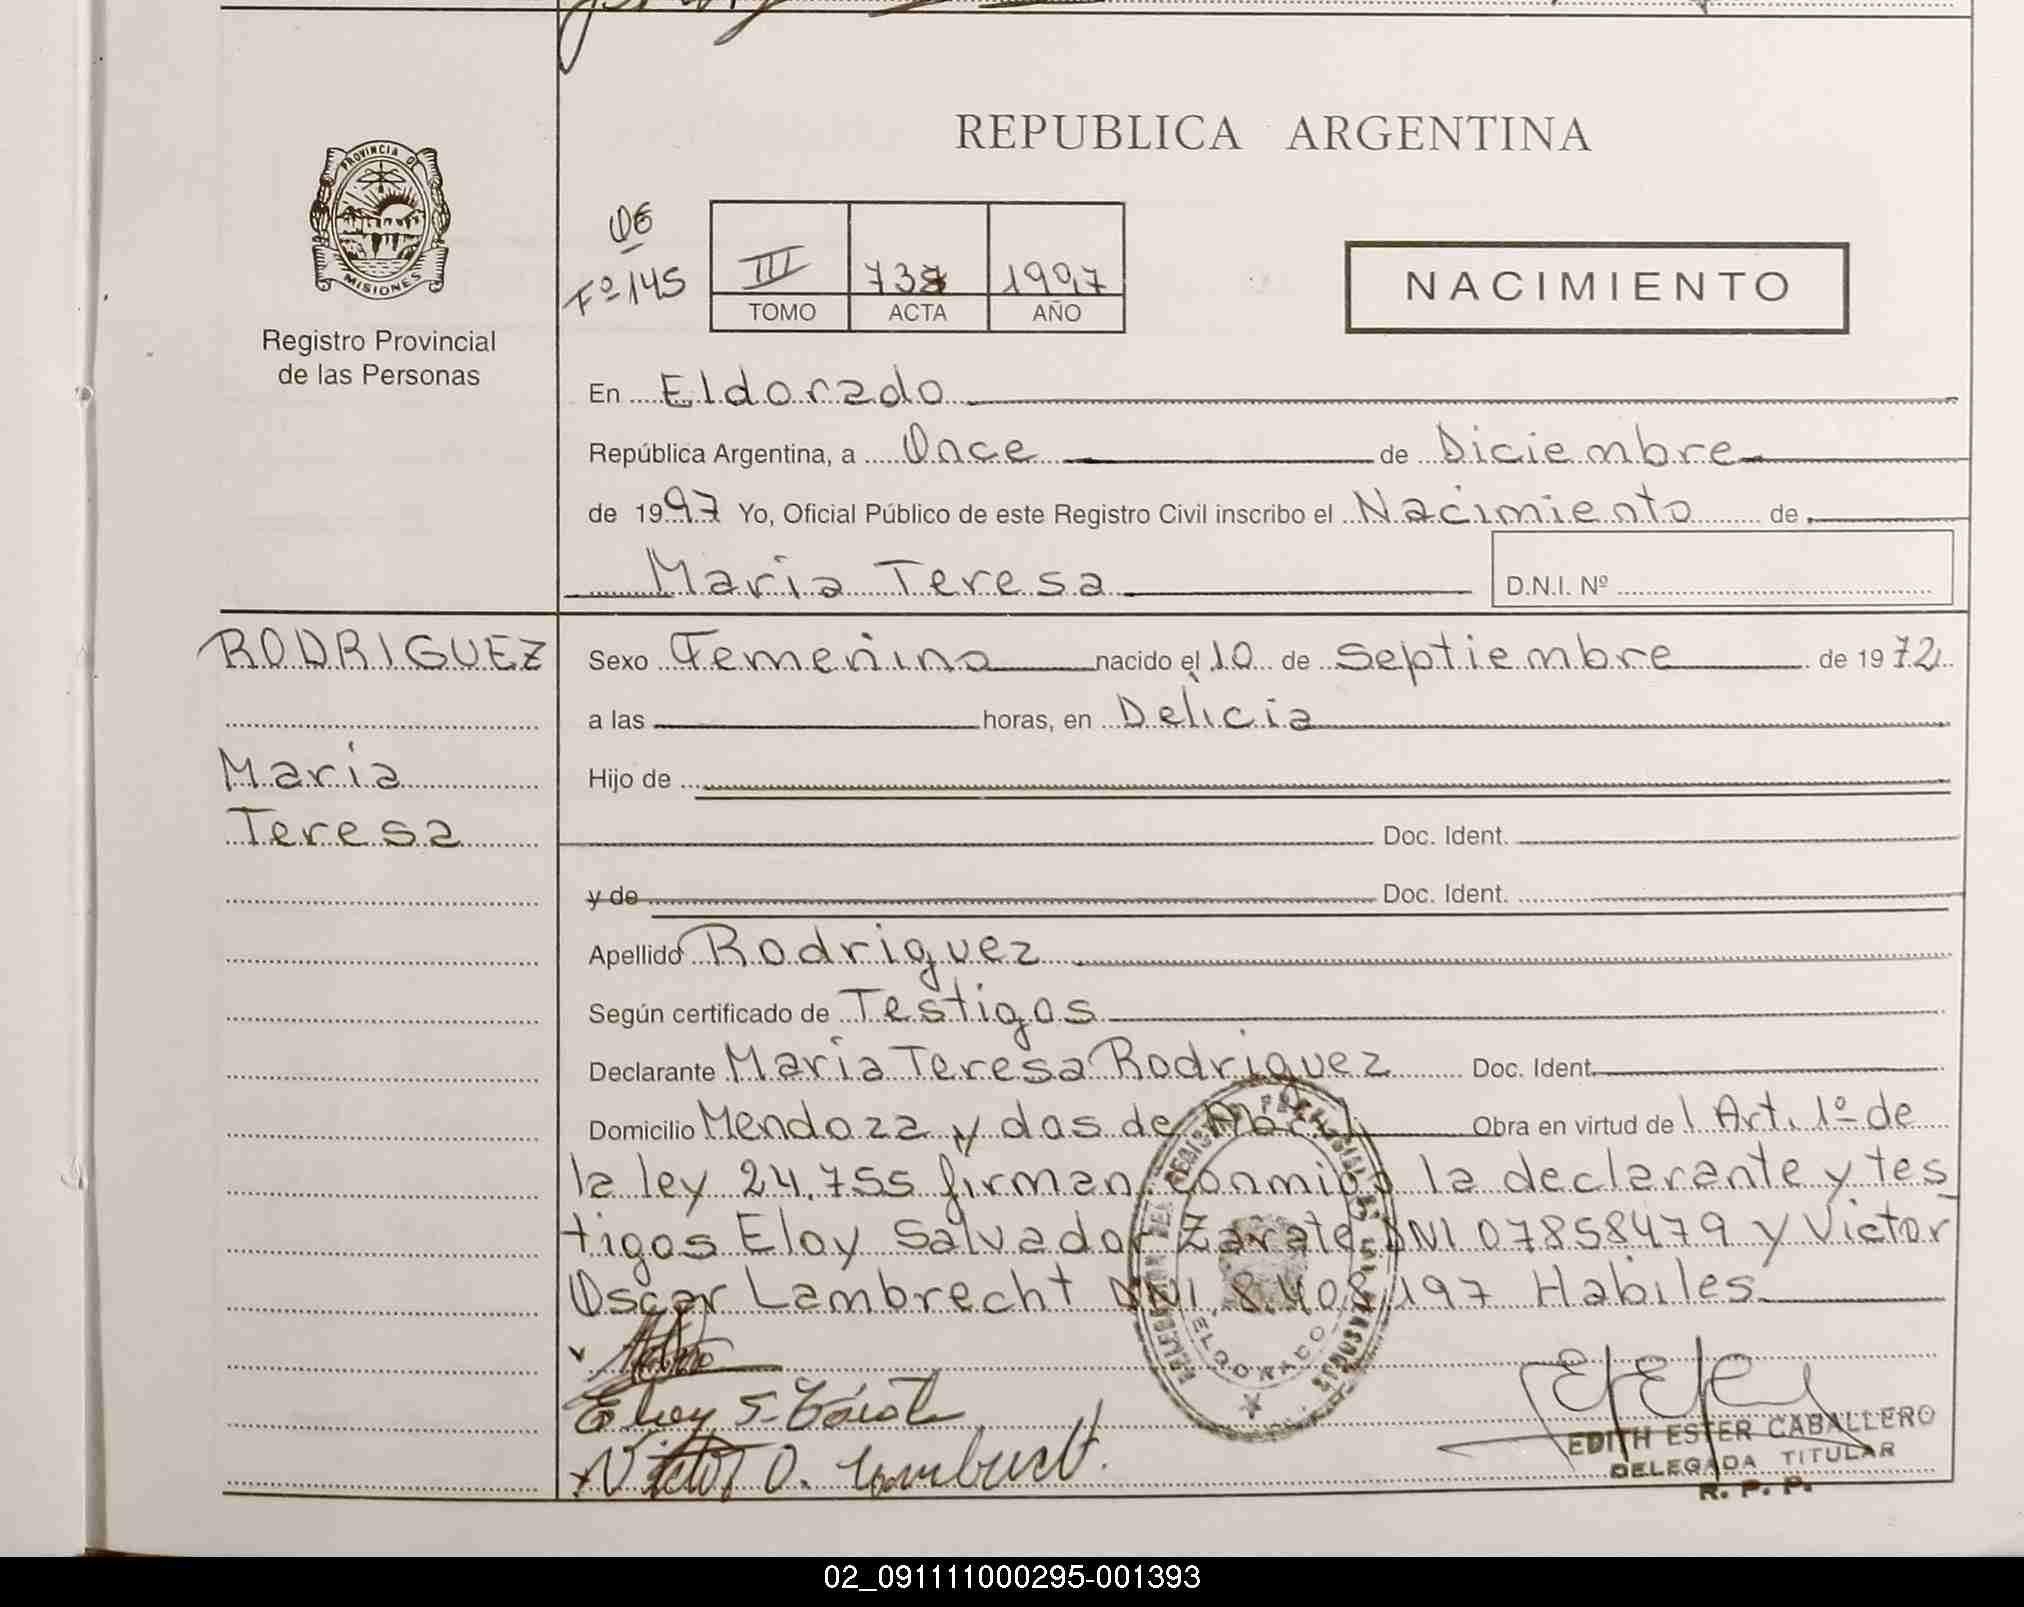 REPUBLICA ARGENTINA
PROVINCIA DE
MISIONES
Registro Provincial
de las Personas
Fº 145
III 1997
TOMO ACTA AÑO
NACIMIENTO
En Eldorado
República Argentina, a Once de Diciembre
de 1997 Yo, Oficial Público de este Registro Civil inscribo el Nacimiento de
Maria Teresa D.N.I. Nº
RODRIGUEZ
Maria
Teresa
Sexo Femenino nacido el 10 de Septiembre de 1972
a las horas, en Delicia
Hijo de
Doc. Ident.
y de Doc. Ident.
Apellido Rodriguez
Según certificado de Testigos
Declarante Maria Teresa Rodriguez Doc. Ident.
Domicilio Mendoza y dos de Abril Obra en virtud del Art. 1º de
la ley 24.755 firman conmigo la declarante y tes
tigos Eloy Salvador Zarate DNI 07858479 y Victor
Oscar Lambrecht DNI 8.408.197 Habiles
ELDORADO
EDITH ESTER CABALLERO
DELEGADA TITULAR
R. P. P.
02_091111000295-001393